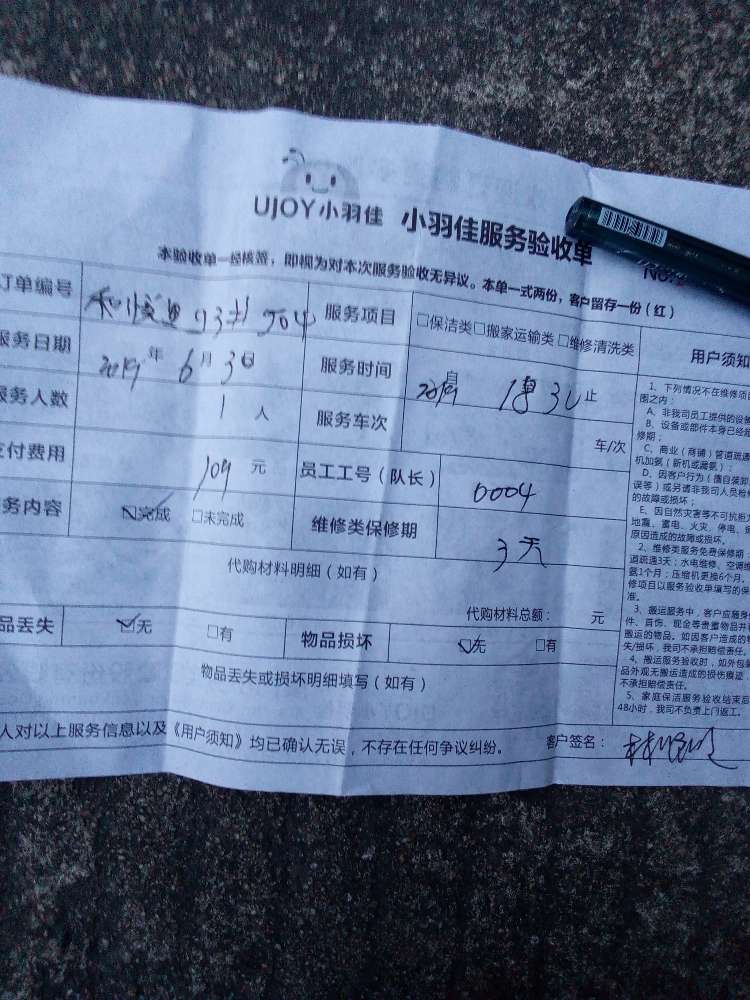 UJOY小羽佳 小羽佳服务验收单
No.
本验收单一经核签，即视为对本次服务验收无异议。本单一式两份，客户留存一份（红）
订单编号 904 服务项目 □保洁类□搬家运输类□维修清洗类 用户须知
服务日期 2019年6月3日 服务时间 止
服务人数 1人 服务车次 车/次
支付费用 109元 员工工号（队长） 0004
务内容 ☑完成 □未完成 维修类保修期 3天
代购材料明细（如有）
代购材料总额： 元
品丢失 ☑无 □有 物品损坏 ☑无 □有
物品丢失或损坏明细填写（如有）
人对以上服务信息以及《用户须知》均已确认无误，不存在任何争议纠纷。 客户签名：
1、下列情况不在维修项
围之内：
A、非我司员工提供的设
B、设备或部件本身已经
修期；
C、商业（商铺）管道疏通
机加氨（新机或漏氨）；
D、因客户行为（擅自装卸
误等）或另请非我司人员检
的故障或损坏；
E、因自然灾害等不可抗
地震、蓄电、火灾、停电、
原因造成的故障或损坏。
2、维修类服务免费保修期：
道疏通3天；水电维修、空调
氨1个月；压缩机更换6个月。
修项目以服务验收单填写的保
准。
3、搬运服务中，客户应随身
件、首饰、现金等贵重物品并
搬运的物品。如因客户造成的
失/损坏，我司不承担赔偿责任。
4、搬运服务验收时，如外包
品外观无搬运造成的损伤痕迹，
不承担赔偿责任。
5、家庭保洁服务验收结束后
48小时，我司不负责上门返工。